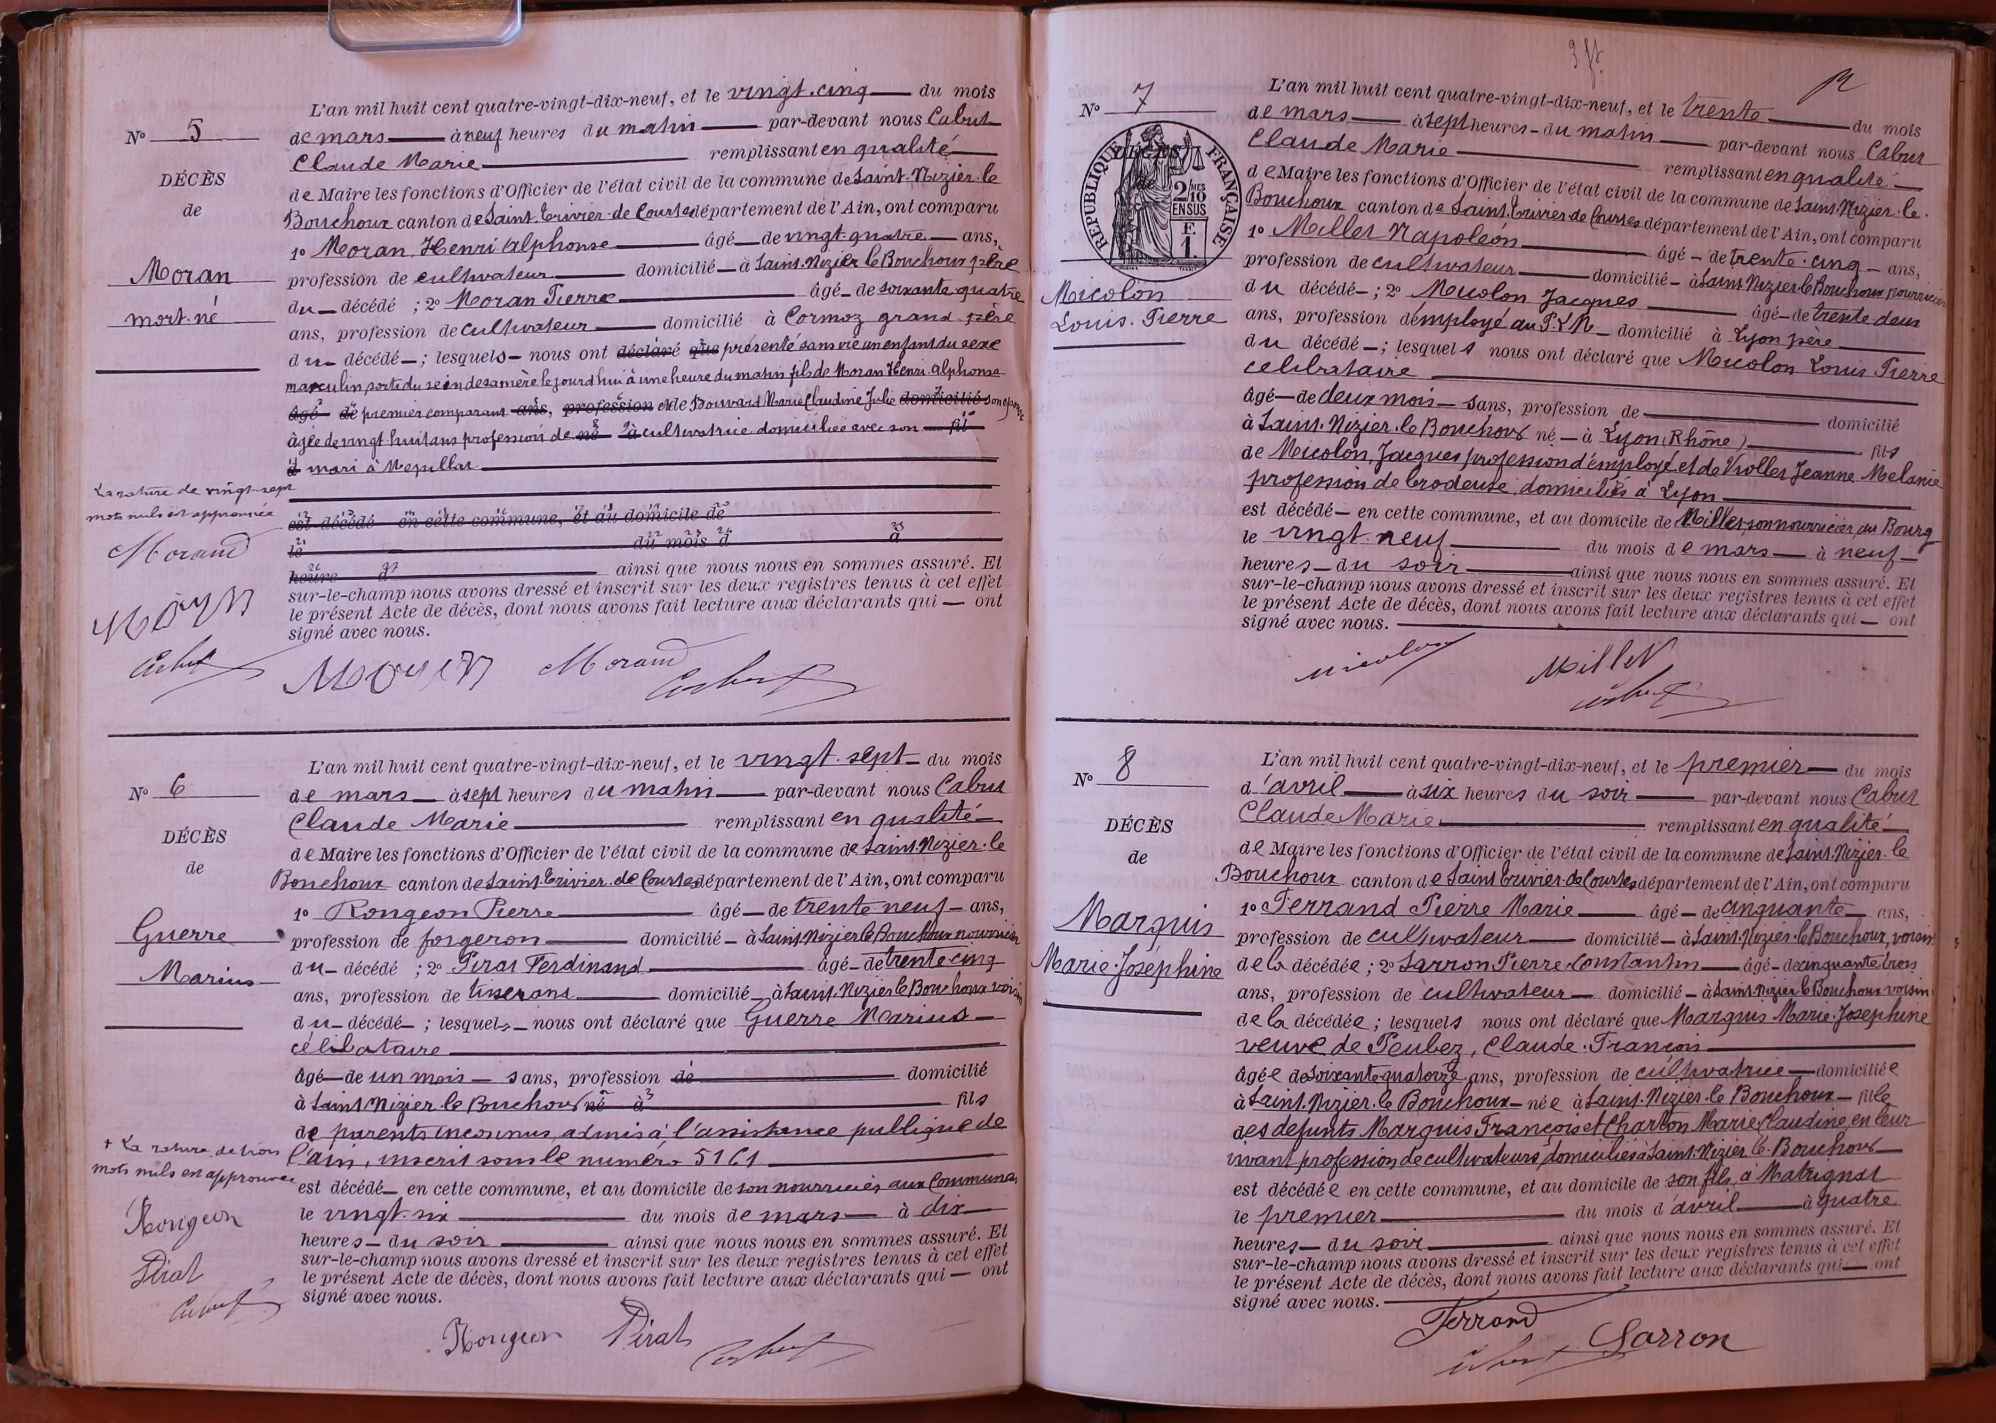 N° 5
DÉCÈS
de
Moran
mort-né
L'an mil huit cent quatre-vingt-dix-neuf, et le vingt-cinq du mois
de mars à neuf heures du matin par-devant nous Cabut
Claude Marie remplissant en qualité
de Maire les fonctions d'Officier de l'état civil de la commune de Saint-Nizier-le
Bouchoux canton de Saint-Trivier-de-Courtes département de l'Ain, ont comparu
1° Moran, Henri Alphonse âgé de vingt-quatre ans,
profession de cultivateur domicilié à Saint-Nizier le Bouchoux père
du décédé ; 2° Moran Pierre âgé de soixante quatre
ans, profession de cultivateur domicilié à Cormoz grand-père
du décédé ; lesquels nous ont déclaré que présenté sans vie un enfant du sexe
masculin, sorti du sein de sa mère le jourd'hui à une heure du matin fils de Moran Henri Alphonse
âgé de premier comparant ans, profession et de Bouvard Marie Claudine Julie domicilié son épouse
âgée de vingt huit ans profession de né à cultivatrice domiciliée avec son fil
d mari à
est décédé en cette commune, et au domicile de
le du mois d à
heure d ainsi que nous nous en sommes assuré. Et
sur-le-champ nous avons dressé et inscrit sur les deux registres tenus à cet effet
le présent Acte de décès, dont nous avons fait lecture aux déclarants qui ont
signé avec nous.
La rature de vingt-sept
mots nuls est approuvée
Morand
Moran
Cabut
Moran Morand Cabut
N° 6
DÉCÈS
de
Guerre
Marius
L'an mil huit cent quatre-vingt-dix-neuf, et le vingt-sept du mois
de mars à sept heures du matin par-devant nous Cabut
Claude Marie remplissant en qualité
de Maire les fonctions d'Officier de l'état civil de la commune de Saint-Nizier-le
Bouchoux canton de Saint-Trivier-de-Courtes département de l'Ain, ont comparu
1° Rongeon Pierre âgé de trente neuf ans,
profession de forgeron domicilié à Saint-Nizier le Bouchoux nourricier
du décédé ; 2° Pirat Ferdinand âgé de trente cinq
ans, profession de tisserand domicilié à Saint-Nizier le Bouchoux voisin
du décédé ; lesquels nous ont déclaré que Guerre Marius
célibataire
âgé de un mois sans, profession de domicilié
à Saint Nizier le Bouchoux né à fils
de parents inconnus, admis à l'assistance publique de
l'ain, inscrit sous le numéro 5161
est décédé en cette commune, et au domicile de son nourricier aux Communes
le vingt-six du mois de mars à dix
heures du soir ainsi que nous nous en sommes assuré. Et
sur-le-champ nous avons dressé et inscrit sur les deux registres tenus à cet effet
le présent Acte de décès, dont nous avons fait lecture aux déclarants qui ont
signé avec nous.
+ La rature de trois
mots nuls est approuvée
Rongeon
Pirat
Cabut
Rongeon Pirat Cabut
N° 7
DÉCÈS
de
RÉPUBLIQUE FRANÇAISE
2/10 EN SUS
F. 1.
Micolon
Louis-Pierre
L'an mil huit cent quatre-vingt-dix-neuf, et le trente du mois
de mars à sept heures du matin par-devant nous Cabut
Claude Marie remplissant en qualité
de Maire les fonctions d'Officier de l'état civil de la commune de Saint-Nizier-le-
Bouchoux canton de Saint-Trivier de Courtes département de l'Ain, ont comparu
1° Millet Napoléon âgé de trente-cinq ans,
profession de cultivateur domicilié à Saint-Nizier le Bouchoux nourricier
du décédé ; 2° Micolon Jacques âgé de trente deux
ans, profession d'employé au P.L.M domicilié à Lyon père
du décédé ; lesquels nous ont déclaré que Micolon Louis Pierre
célibataire
âgé de deux mois sans, profession de domicilié
à Saint-Nizier-le Bouchoux né à Lyon (Rhône) fils
de Micolon, Jacques profession d'employé et de Viollet Jeanne Mélanie
profession de brodeuse domiciliés à Lyon
est décédé en cette commune, et au domicile de Millet, son nourricier, au Bourg
le vingt-neuf du mois de mars à neuf
heures du soir ainsi que nous nous en sommes assuré. Et
sur-le-champ nous avons dressé et inscrit sur les deux registres tenus à cet effet
le présent Acte de décès, dont nous avons fait lecture aux déclarants qui ont
signé avec nous.
Micolon Millet
Cabut
N° 8
DÉCÈS
de
Marquis
Marie-Joséphine
L'an mil huit cent quatre-vingt-dix-neuf, et le premier du mois
d'avril à six heures du soir par-devant nous Cabut
Claude Marie remplissant en qualité
de Maire les fonctions d'Officier de l'état civil de la commune de Saint-Nizier-le
Bouchoux canton de Saint Trivier-de Courtes département de l'Ain, ont comparu
1° Ferrand Pierre Marie âgé de cinquante ans,
profession de cultivateur domicilié à Saint-Nizier-le Bouchoux, voisin
de la décédée ; 2° Sarron Pierre-Constantin âgé de cinquante trois
ans, profession de cultivateur domicilié à Saint-Nizier le Bouchoux voisin
de la décédée ; lesquels nous ont déclaré que Marquis Marie-Joséphine
veuve de Peubez, Claude-François
âgée de soixante quatorze ans, profession de cultivatrice domiciliée
à Saint-Nizier-le Bouchoux née à Saint-Nizier-le Bouchoux fille
des défunts Marquis François et Charton Marie Claudine en leur
vivant profession de cultivateurs domiciliés à Saint-Nizier le Bouchoux
est décédée en cette commune, et au domicile de son fils, à Matrignat
le premier du mois d'avril à quatre
heures du soir ainsi que nous nous en sommes assuré. Et
sur-le-champ nous avons dressé et inscrit sur les deux registres tenus à cet effet
le présent Acte de décès, dont nous avons fait lecture aux déclarants qui ont
signé avec nous.
Ferrand
Cabut Sarron